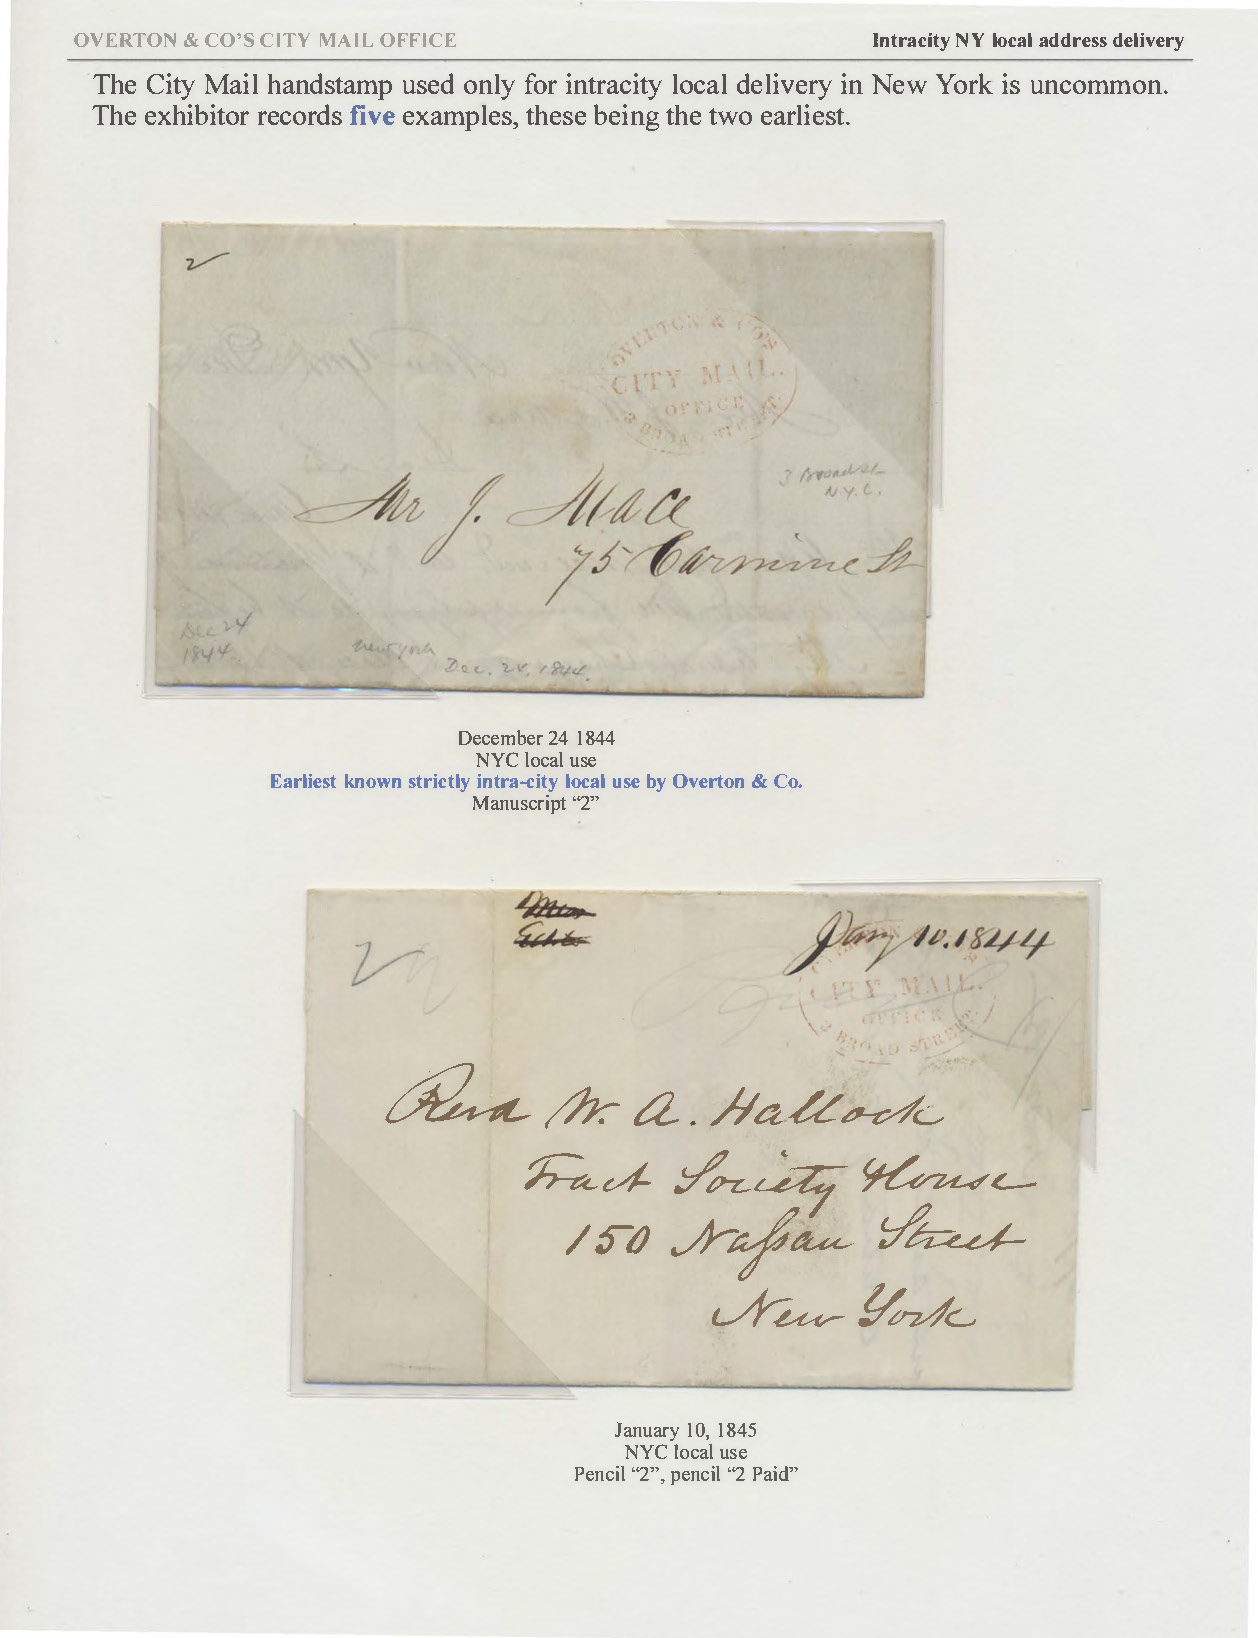 OVERTON & CO'S CITY MAIL OFFICE
Intracity NY local address delivery
The City Mail handstamp used only for intracity local delivery in New York is uncommon.
The exhibitor records five examples, these being the two earliest.
2
OVERTON & CO'S
CITY MAIL.
OFFICE
3 BROAD STREET.
3 Broad St
N.Y.C.
Mr J. Mace
75 Carmine St
Dec 24
1844
New York
Dec. 24, 1844.
December 24 1844
NYC local use
Earliest known strictly intra-city local use by Overton & Co.
Manuscript “2”
Jany 10. 1844
2
CITY MAIL.
OFFICE
3 BROAD STREET.
Revd W. A. Hallock
Tract Society House
150 Nassau Street
New York
January 10, 1845
NYC local use
Pencil “2”, pencil “2 Paid”